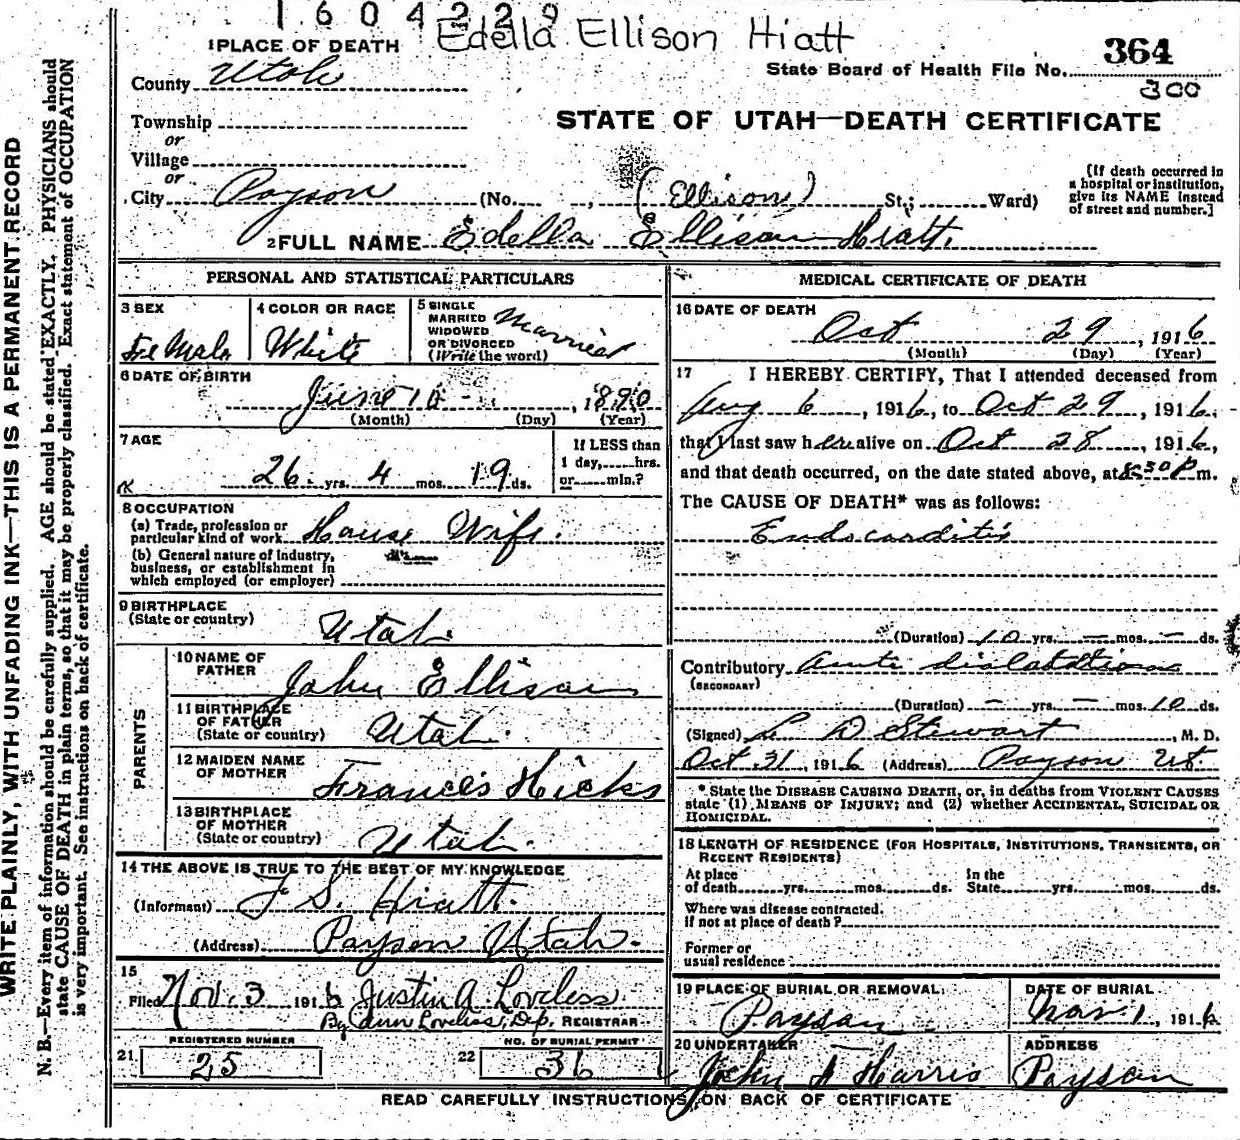 1604229
Edella Ellison Hiatt
1 PLACE OF DEATH
364
State Board of Health File No.
300
County Utah
STATE OF UTAH—DEATH CERTIFICATE
Township
or
Village
or
City Payson (No. , (Ellison) St.; Ward)
(If death occurred in
a hospital or institution,
give its NAME instead
of street and number.]
2 FULL NAME Edella Ellison Hiatt.
PERSONAL AND STATISTICAL PARTICULARS
3 SEX
Fe Male
4 COLOR OR RACE
White
5 SINGLE
MARRIED
WIDOWED
OR DIVORCED
(Write the word)
Married
6 DATE OF BIRTH
June 10 , 1890
(Month) (Day) (Year)
7 AGE
26 yrs. 4 mos. 19 ds.
If LESS than
1 day, hrs.
or min.?
8 OCCUPATION
(a) Trade, profession or
particular kind of work House Wife.
(b) General nature of industry,
business, or establishment in
which employed (or employer)
9 BIRTHPLACE
(State or country)
Utah
PARENTS
10 NAME OF
FATHER
John Ellison
11 BIRTHPLACE
OF FATHER
(State or country)
Utah.
12 MAIDEN NAME
OF MOTHER
Frances Hicks
13 BIRTHPLACE
OF MOTHER
(State or country)
Utah.
14 THE ABOVE IS TRUE TO THE BEST OF MY KNOWLEDGE
(Informant) J S. Hiatt.
(Address) Payson Utah.
15
Filed Nov. 3 1916 Justin A. Loveless
By Ann Loveless, Dep. REGISTRAR
REGISTERED NUMBER
21. 25
NO. OF BURIAL PERMIT
22 36
MEDICAL CERTIFICATE OF DEATH
16 DATE OF DEATH
Oct 29 , 1916
(Month) (Day) (Year)
17 I HEREBY CERTIFY, That I attended deceased from
Aug 6 , 1916, to Oct 29 , 1916.
that I last saw her alive on Oct 28 , 1916,
and that death occurred, on the date stated above, at 8:30 P m.
The CAUSE OF DEATH* was as follows:
Endocarditis
(Duration) 10 yrs. — mos. — ds.
Contributory Acute dialatation
(SECONDARY)
(Duration) — yrs. — mos. 10 ds.
(Signed) L D Stewart , M. D.
Oct. 31 , 1916 (Address) Payson Ut.
* State the DISEASE CAUSING DEATH, or, in deaths from VIOLENT CAUSES
state (1) MEANS OF INJURY; and (2) whether ACCIDENTAL, SUICIDAL OR
HOMICIDAL.
18 LENGTH OF RESIDENCE (FOR HOSPITALS, INSTITUTIONS, TRANSIENTS, OR
RECENT RESIDENTS)
At place
of death yrs. mos. ds.
In the
State yrs. mos. ds.
Where was disease contracted.
If not at place of death?
Former or
usual residence
19 PLACE OF BURIAL OR REMOVAL
Payson
DATE OF BURIAL
Nov. 1 , 1916
20 UNDERTAKER
John T Harris
ADDRESS
Payson
READ CAREFULLY INSTRUCTIONS ON BACK OF CERTIFICATE
WRITE PLAINLY, WITH UNFADING INK—THIS IS A PERMANENT RECORD
N. B.—Every item of information should be carefully supplied. AGE should be stated EXACTLY. PHYSICIANS should
state CAUSE OF DEATH in plain terms, so that it may be properly classified. Exact statement of OCCUPATION
is very important. See instructions on back of certificate.